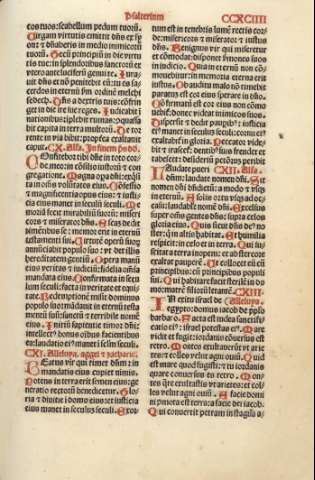 Psalterium
CCXCIIII
eos tuos: scabellum pedum tuorū.
Uirgam virtutis
in medio inimicorū
tuorū. Tecū principiū in die virtu
tis tue: in splendoribus sanctorū: ex
vtero ante luciferū genui te. Jura
uit dn̄s et nō penitebit eū: tu es sa-
cerdos in eternū ordinē melchi
sedech. Dn̄s a dextris tuis: cōfre
git in die ire sue reges. Judicabit in
nationibus: implebit ruinas: conqssa
bit capita in terra multorū. De tor
rente in via bibet: propterea exaltabit
caput. CX.
Confitebor tibi dn̄e in toto cor
de meo: in cōsilio iustorū et con
gregatione. Magna opera dn̄i: exqsi
ta in oēs volūtates eius. Cōfessio
et magnificentia opus eius: et iusti-
cia eius manet in seculū seculi. Me
moriā fecit mirabiliū suorū: miseri
cors et miserator dn̄s. escas dedit
timentibus se: memor erit in eternū
testamenti sui. Uirtutē operū suorū
annūciabit populo suo: vt det illis
hereditatem gentiū. Opera manuū
eius veritas et iudiciū: fidelia oīa
mandata eius. Confirmata in secu
lum seculi: facta in veritate et equita
te. Redemptionē misit dominus
populo suo: mandauit in eternū testa
mentū suū: sanctū et terribile nomē
eius. Initiū sapientie timor dn̄i:
intellect⁹ bonus oībus facientibus
eū: laudatio ei⁹ manet in sclm seculi.
CXI. Alleluya. aggei et zacharie.
Beatus vir qui timet dn̄m: in
mandatis eius cupiet nimis.
Potens in terra erit semen eius: ge
neratio rectorū benedicetur. Glo-
ria et diuitie in domo eius: et iusticia
eius manet in seculum seculi. Exor
tum est in tenebris lumē rectis: cors
dn̄s: misericors et miserator et iustus
dn̄s. Benignus vir qui miseretur
et cōmodat: disponet sermones suos
in iudicio. Quia in eternū non cō
mouebitur: in memoria eterna erit
iustus. Ab auditu malo nō timebit:
paratum est cor eius sperare in dn̄o.
Cōfirmatū est cor eius: non cōmo
uebit⁹: donec despiciat inimicos suos.
Dispersit dedit pauperib⁹: iusticia
ei⁹ manet in seculū seculi: cornu ei⁹
exaltabit⁹ in gloria. Peccator vide
bit et irascet⁹: dentibus suis fremet et
tabescet: desideriū pctōrum peribit
Laudate pueri CXII.
dn̄m: laudate nomen dn̄i. Sit
nomen dn̄i bn̄dictū: ex hoc nunc et vsqz
in seculū. A solis ortu vsqz ad occa
sum: laudabile nomē dn̄i. Excelsus
super omēs gentes dn̄s: supra celos
gloria eius. Quis sicut dn̄s deus no
ster: qui in altis habitat. Et humilia
respicit: in celo et in terra. Qui su-
scitat a terra inopem: et de stercore
erigit pauperē. Ut collocet eū cū
principibus: cū principibus populi
sui. Qui habitare facit sterilē in do
mo: matrē filiorū letantē. CXIII.
In exitu israel de Alleluya.
egypto: domus iacob de pplo
barbaro. Facta est iudea sanctifi
catio ei⁹: israel potestas ei⁹. Mare
vidit et fugit: iordanis cōuersus est
retrorsum. Montes exultauerūt vt arie
tes: et colles vt agni ouiū. Quid
est mare quod fugisti: et tu iordanis
quare conuersus es retrorsum. Mon
tes qre exultastis vt arietes: et col
les vt agni ouiū. A facie domi
ni mota est terra: a facie dei iacob.
Qui conuertit petram in stagna a-